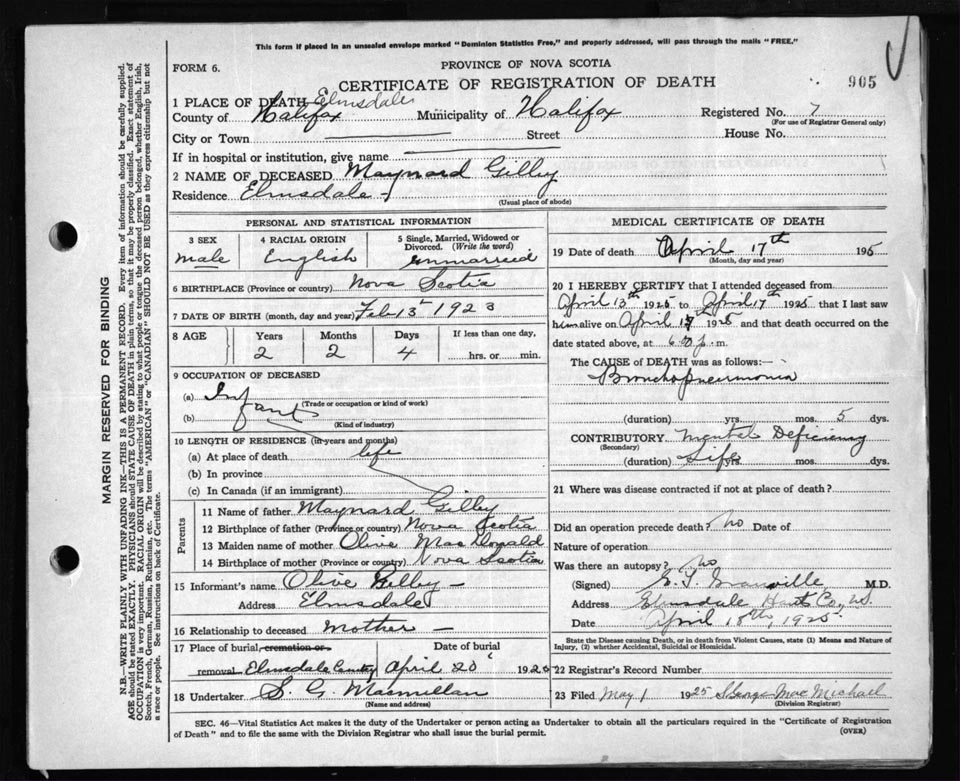 This form if placed in an unsealed envelope marked "Dominion Statistics Free," and properly addressed, will pass through the mails "FREE."
FORM 6.
PROVINCE OF NOVA SCOTIA
CERTIFICATE OF REGISTRATION OF DEATH
905
1 PLACE OF DEATH Elmsdale
County of Halifax Municipality of Halifax Registered No. 7
(For use of Registrar General only)
City or Town Street House No.
If in hospital or institution, give name
2 NAME OF DECEASED Maynard Gilby
Residence Elmsdale
(Usual place of abode)
PERSONAL AND STATISTICAL INFORMATION
3 SEX 4 RACIAL ORIGIN 5 Single, Married, Widowed or Divorced. (Write the word)
male English unmarried
6 BIRTHPLACE (Province or country) Nova Scotia
7 DATE OF BIRTH (month, day and year) Feb 13 1923
8 AGE Years Months Days If less than one day,
2 2 4 hrs. or min.
9 OCCUPATION OF DECEASED
(a) Infant
(Trade or occupation or kind of work)
(b)
(Kind of industry)
10 LENGTH OF RESIDENCE (in years and months)
(a) At place of death life
(b) In province
(c) In Canada (if an immigrant)
Parents
11 Name of father Maynard Gilby
12 Birthplace of father (Province or country) Nova Scotia
13 Maiden name of mother Olive MacDonald
14 Birthplace of mother (Province or country) Nova Scotia
15 Informant's name Olive Gilby
Address Elmsdale
16 Relationship to deceased mother
17 Place of burial, cremation or Date of burial
removal Elmsdale April 20 192
18 Undertaker S. G. Macmillan
(Name and address)
MEDICAL CERTIFICATE OF DEATH
19 Date of death April 17th 1925
(Month, day and year)
20 I HEREBY CERTIFY that I attended deceased from
April 13th 1925 to April 17th 1925 that I last saw
him alive on April 17th 1925 and that death occurred on the
date stated above, at 6 p.m.
The CAUSE of DEATH was as follows:—
Bronchopneumonia
(duration) yrs. mos. 5 dys.
CONTRIBUTORY Mental Deficiency
(Secondary)
(duration) Life yrs. mos. dys.
21 Where was disease contracted if not at place of death?
Did an operation precede death? no Date of
Nature of operation
Was there an autopsy? no
(Signed) M.D.
Address Elmsdale Hants Co., N.S.
Date April 18th, 1925
State the Disease causing Death, or in death from Violent Causes, state (1) Means and Nature of
Injury, (2) whether Accidental, Suicidal or Homicidal.
22 Registrar's Record Number
23 Filed May 1 1925 George MacMichael
(Division Registrar)
SEC. 46—Vital Statistics Act makes it the duty of the Undertaker or person acting as Undertaker to obtain all the particulars required in the "Certificate of Registration
of Death" and to file the same with the Division Registrar who shall issue the burial permit.
(OVER)
MARGIN RESERVED FOR BINDING
N.B.—WRITE PLAINLY WITH UNFADING INK—THIS IS A PERMANENT RECORD. Every item of information should be carefully supplied.
AGE should be stated EXACTLY. PHYSICIANS should STATE CAUSE OF DEATH in plain terms, so that it may be properly classified. Exact statement of
OCCUPATION is very important. RACIAL ORIGIN will be described by stating to what people or tongue the deceased person belonged, whether English, Irish,
Scotch, French, German, Russian, Ruthenian, etc. The terms "AMERICAN" or "CANADIAN" SHOULD NOT BE USED as they express citizenship but not
a race or people. See instructions on back of Certificate.